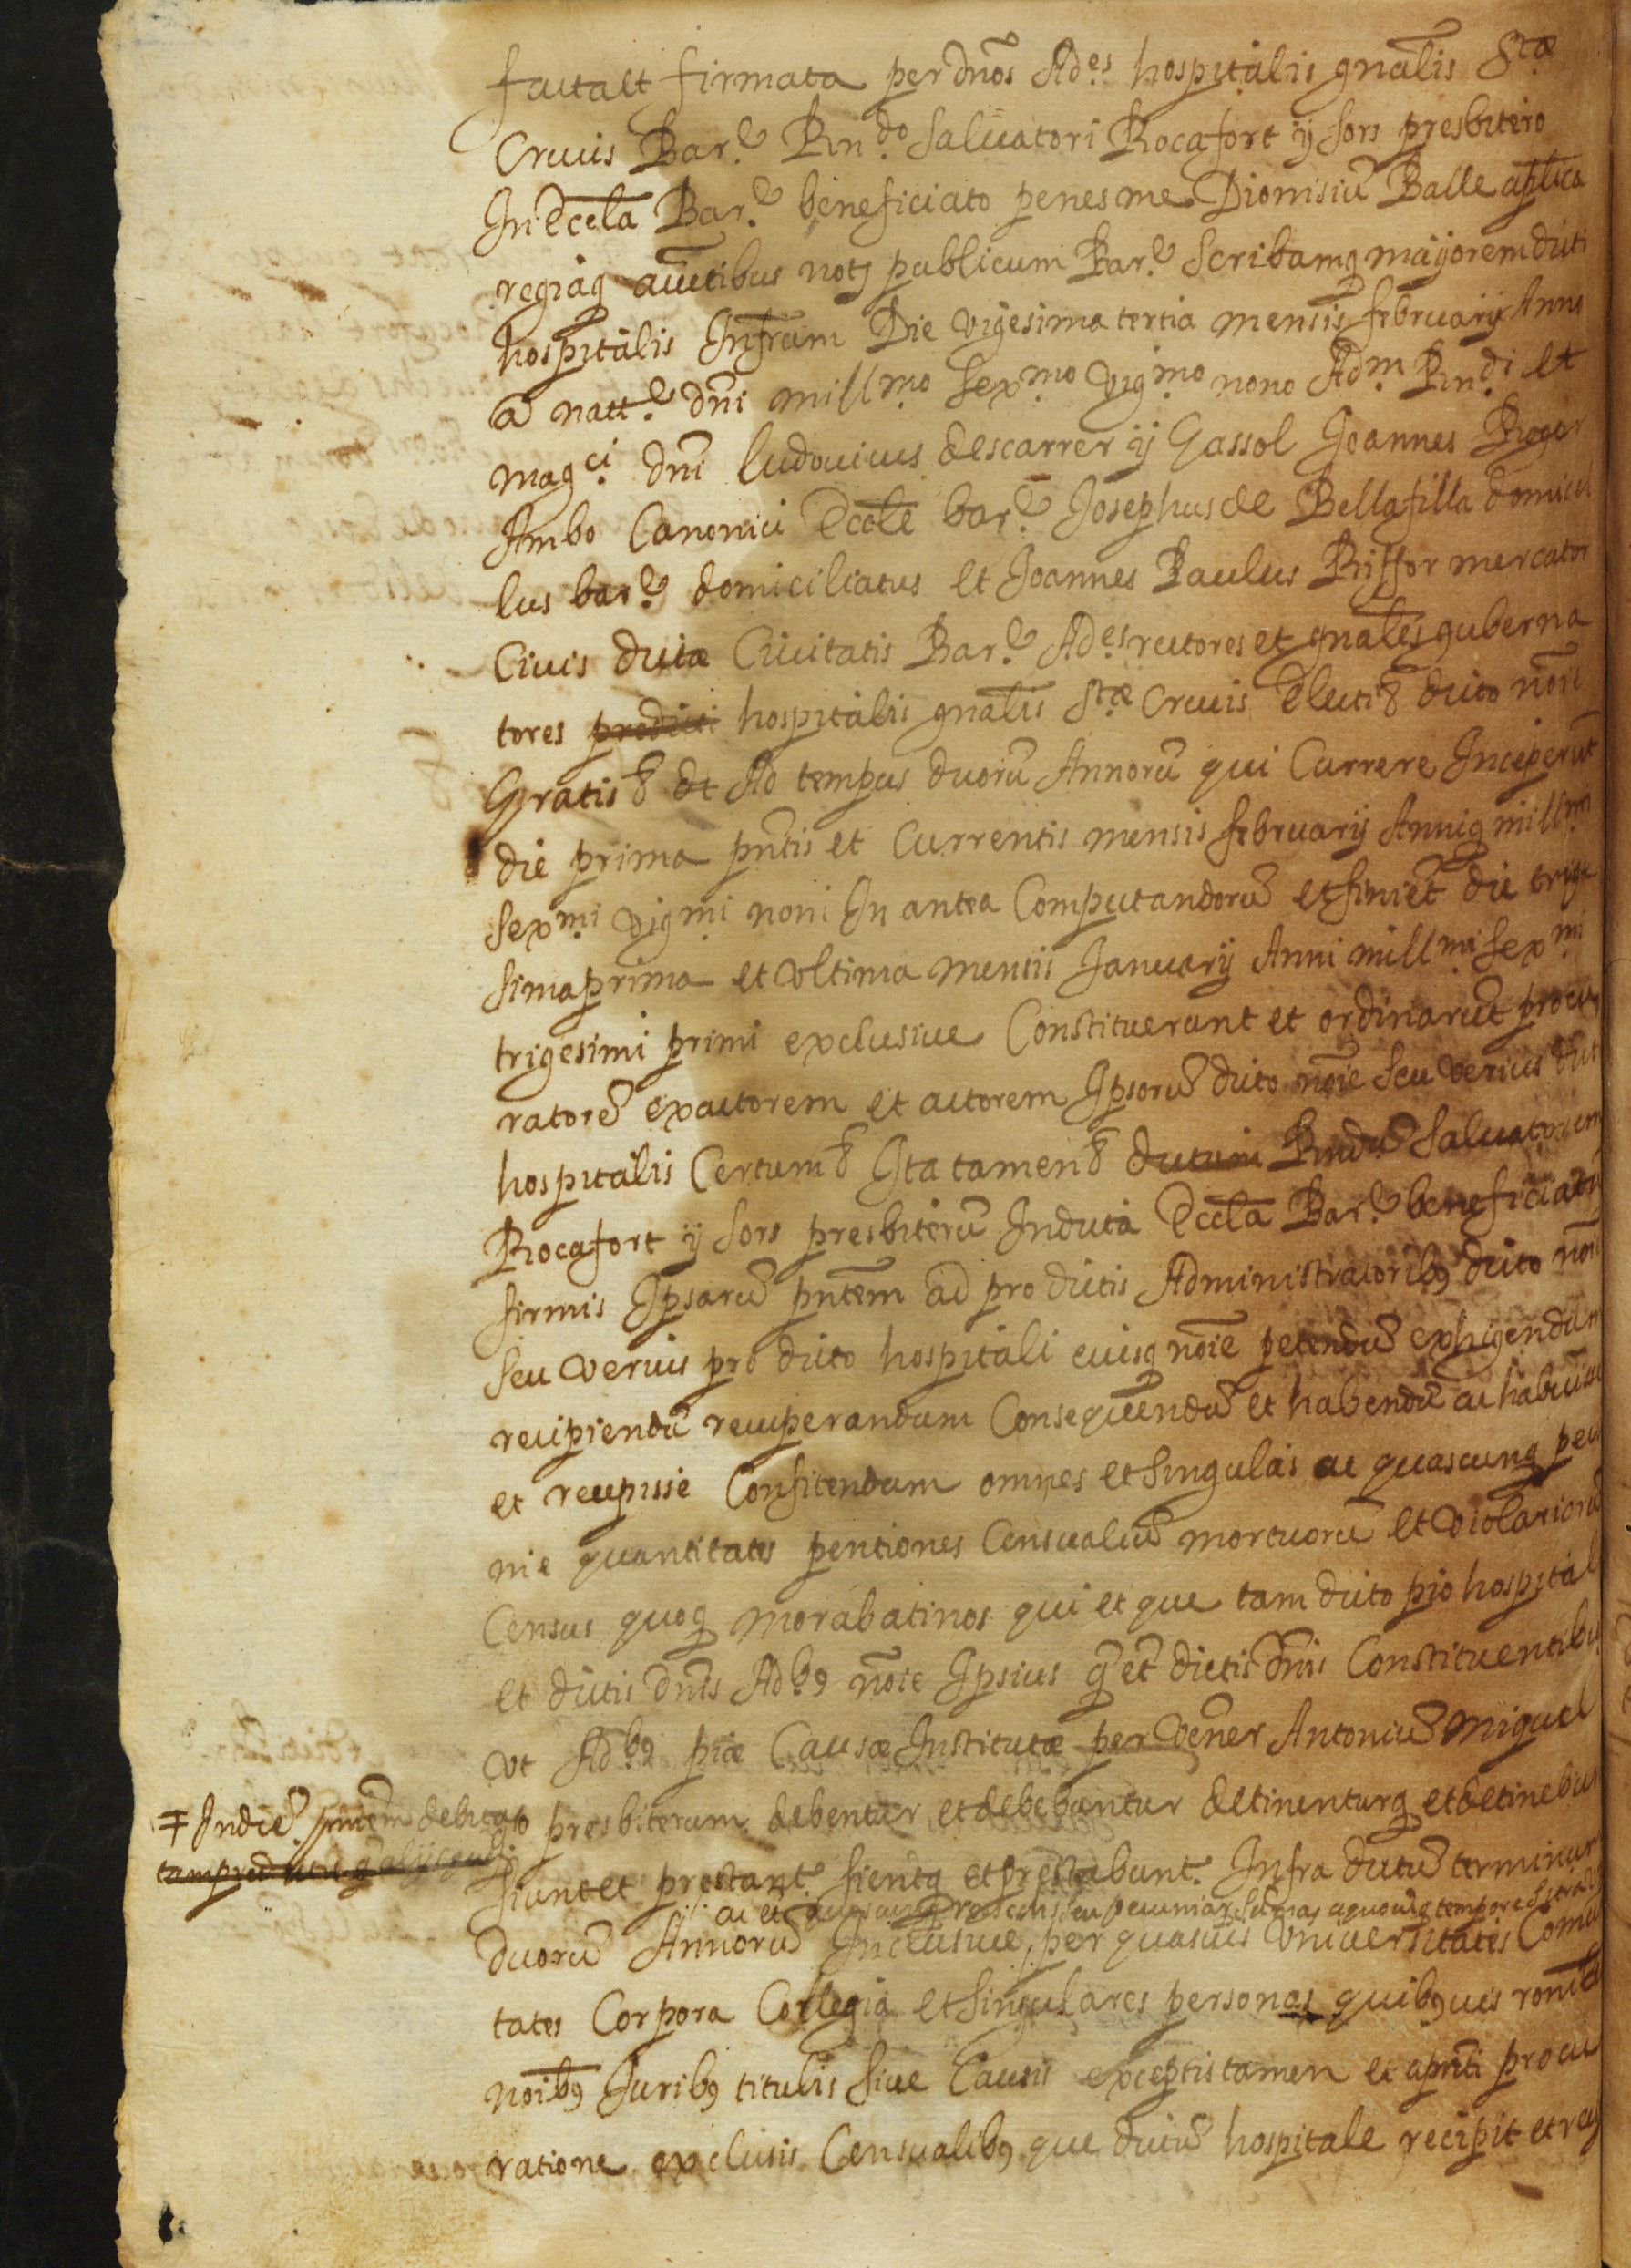 factaet firmata per dnos Ad.es hospitalis gnalis Stæ
Crucis Bar.e Rnd.o Saluatori Rocafort ÿ Sors presbitero
In Eccla Bar.e beneficiato penes me Dionisiu Balle aplica
regiaq auctibus notj publicum Bar.e Scribamq mayorem dicti
hospitalis Infrum Die vigesima tertia mensis februarÿ Anno
a natt.e dni mill.mo Sex.mo vig.mo nono Adm Rnd.i et
mag.ci dni ludouicus descarrer ÿ Gassol Joannes Roger
Ambo Canonici Eccle bar.e Josephus de Bellafilla domicel
lus bar.e domiciliatus et Joannes Paulus Riffor mercator
Ciuis dictæ Ciuitatis Bar.e Ad.es rectores et gnales guberna
tores predicti hospitalis gnalis Stæ Crucis Electi & dicto noie
Gratis & et Ad tempus duoru Annoru qui Currere Inceperut
die prima pntis et Currentis mensis februarÿ Anniq mill.mi
Sex.mi vig.mi noni In antea Computandoru et finiet die trige
simaprima et vltima mensis Januarÿ Anni mill.mi Sex.mi
trigesimi primi exclusiue Constituerunt et ordinarut procu
ratore exactorem et actorem Ipsoru dicto noie Seu verius dicti
hospitalis Certum & Ita tamen & dictum Rndu Saluatorem
Rocafort ÿ Sors presbiteru In dicta Eccla Bar.e beneficiatu
firmis Ipsaru pntem ad pro dictis Administratoribꝰ dicto noie
Seu verius pro dicto hospitali eiusq noie petendu exhigendum
recipiendu recuperandum Consequendu et habendu ac habuisse
et recepisse Confitendum omnes et Singulas ac quascunq pecu
nie quantitates pentiones Censualiu mortuoru et violarioru
Census quoq morabatinos qui et que tam dicto pio hospitali
et dictis dnis Ad.bꝰ noie Ipsius q et dictis dnis Constituentibus
vt Ad.bꝰ piæ Causæ Institutæ per vener Antoniu Miguel
presbiterum debentur et debebuntur detinenturq et detinebun
fiunt et prestant. fientq et prestabunt. Infra dictu terminum
ac et
duoru Annoru Inclusiue, per quasuis vniuersitates Comuni
tates Corpora Collegia et Singulares personas quibꝰuis ronibꝰ
noibꝰ Juribꝰ titulis Siue Causis exceptis tamen et a pnti procu
ratione exclusis Censualibꝰ que dictu hospitale recipit et rec